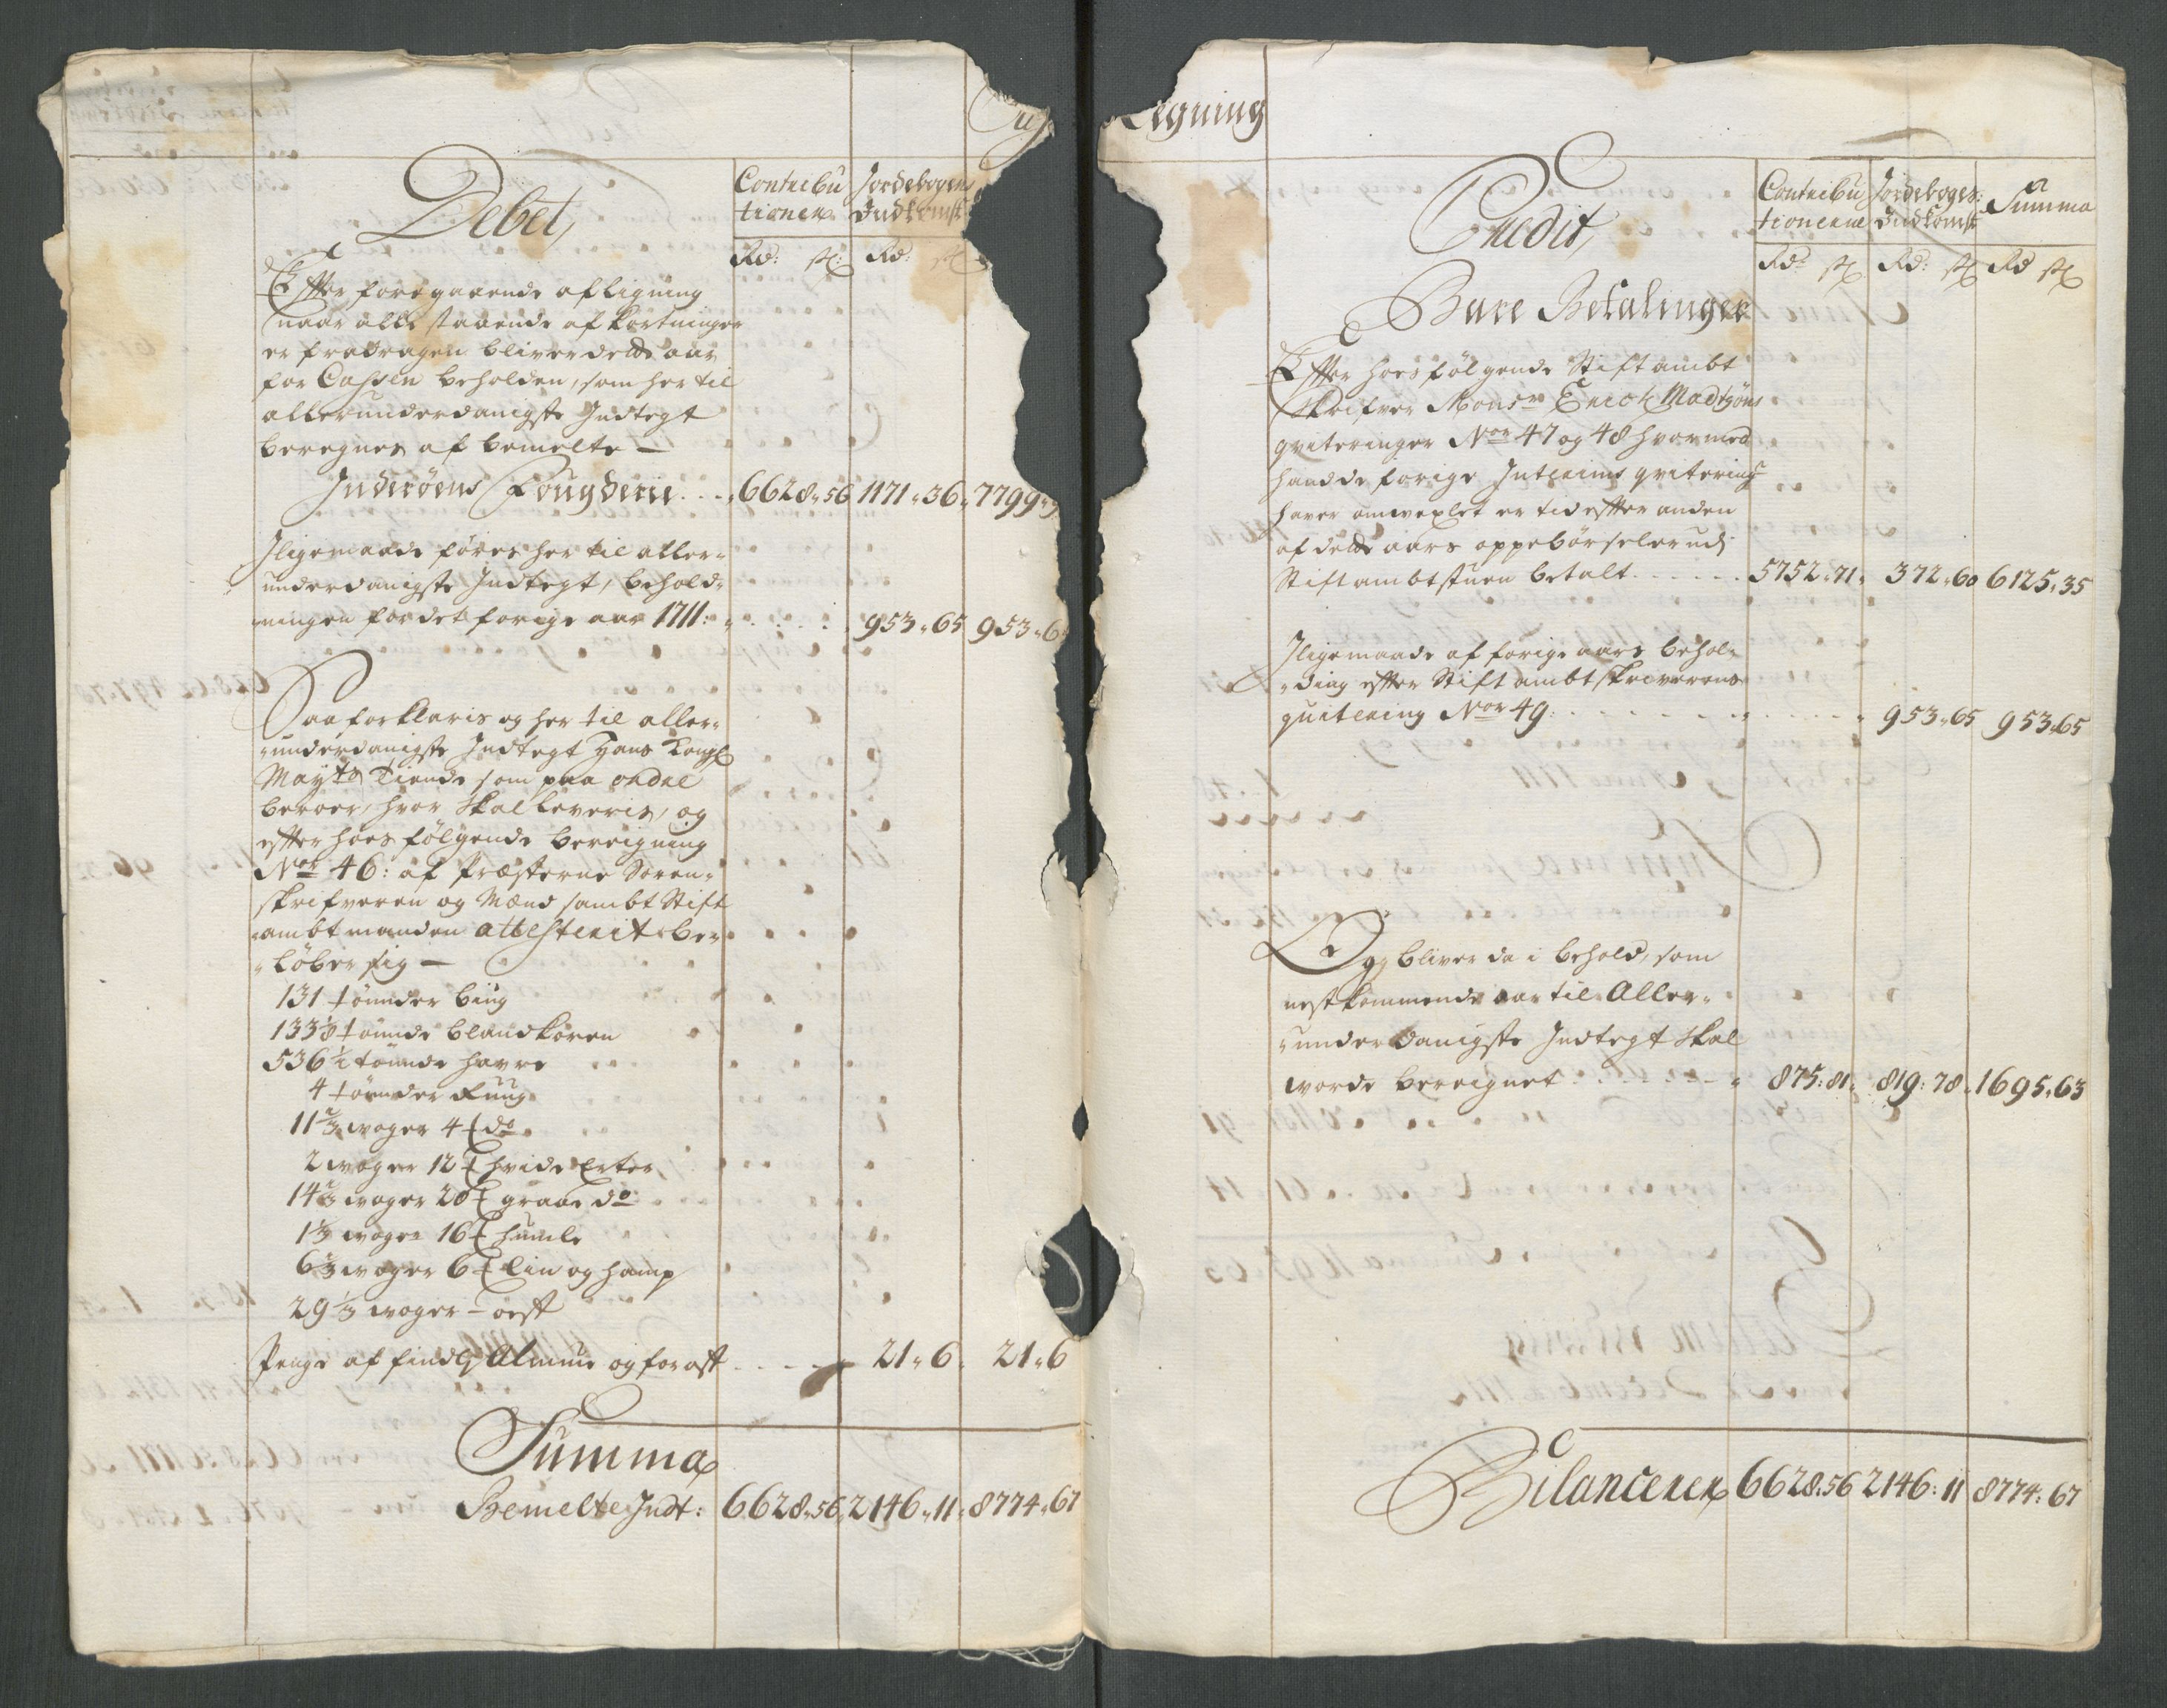 egning
Debet,
Contribu
tionen
Jordebogens
Indkomst
Rd: sk: Rd: sk
Efter foregaaende afligning
naar alle staaende afkortninger
er fradragen bliver dette aar
for Cassen beholden, som her til
allerunderdanigste Indtegt
beregnes af bemelte
Inderøens Fougderie 6628 " 56 1171 " 36 " 7799 "
Iligemaade føres her til aller-
underdanigste Indtegt, behold-
ningen for det forige aar 1711: 953 " 65 953 " 6
Saa forklaris og her til aller-
underdanigste Indtegt Hans Kongl
Mayts Tiende som paa ordre
beroer, hvor skal leveris, og
efter hoes følgende beregning
Nor 46: af Præsterne Soren-
skrifveren og Mænd sambt Stift
ambtmanden attesterit be-
løber sig —
131 tønder biug
133 1/8 tønde blandkoren
536 1/2 tønde havre
4 tønder Rug
11 2/3 woger 4 do
2 woger 12 hvide Erter
14 2/3 woger 20 graae do
1 1/3 woger 16 humle
6 2/3 woger 6 lin og hamp
29 1/3 woger — oest
Penge af findl Almue og for ost 21 " 6 " 21 " 6
Summa
Bemelte Indt: 6628 " 56 " 2146 " 11 " 8774 " 67
Credit,
Contribu
tionerne
Jordebogs:
Indkomst
Summa
Rd: sk Rd: sk Rd sk
Bare Betalinger
Efter hoes følgende Stiftambt
skrifver Monsr Erich Madtzøns
qviteringer Nor 47 og 48 hvormed
hand de forige Interims qvitering
haver omvexlet er tid effter anden
af dette aars oppebørseler udj
Stiftambtstuen betalt 5752 " 71 " 372 " 60 6125 " 35
Iligemaade af forige aars behol-
ding efter Stiftambtskriverens
qvitering Nor 49: 953 " 65 953 " 65
Og bliver da i behold, som
nestkommende aar til Aller-
underdanigste Indtegt skal
worde beregnet 875: 81 " 819: 78 " 1695 " 63
Bilancerer 6628 " 56 2146: 11 8774: 67